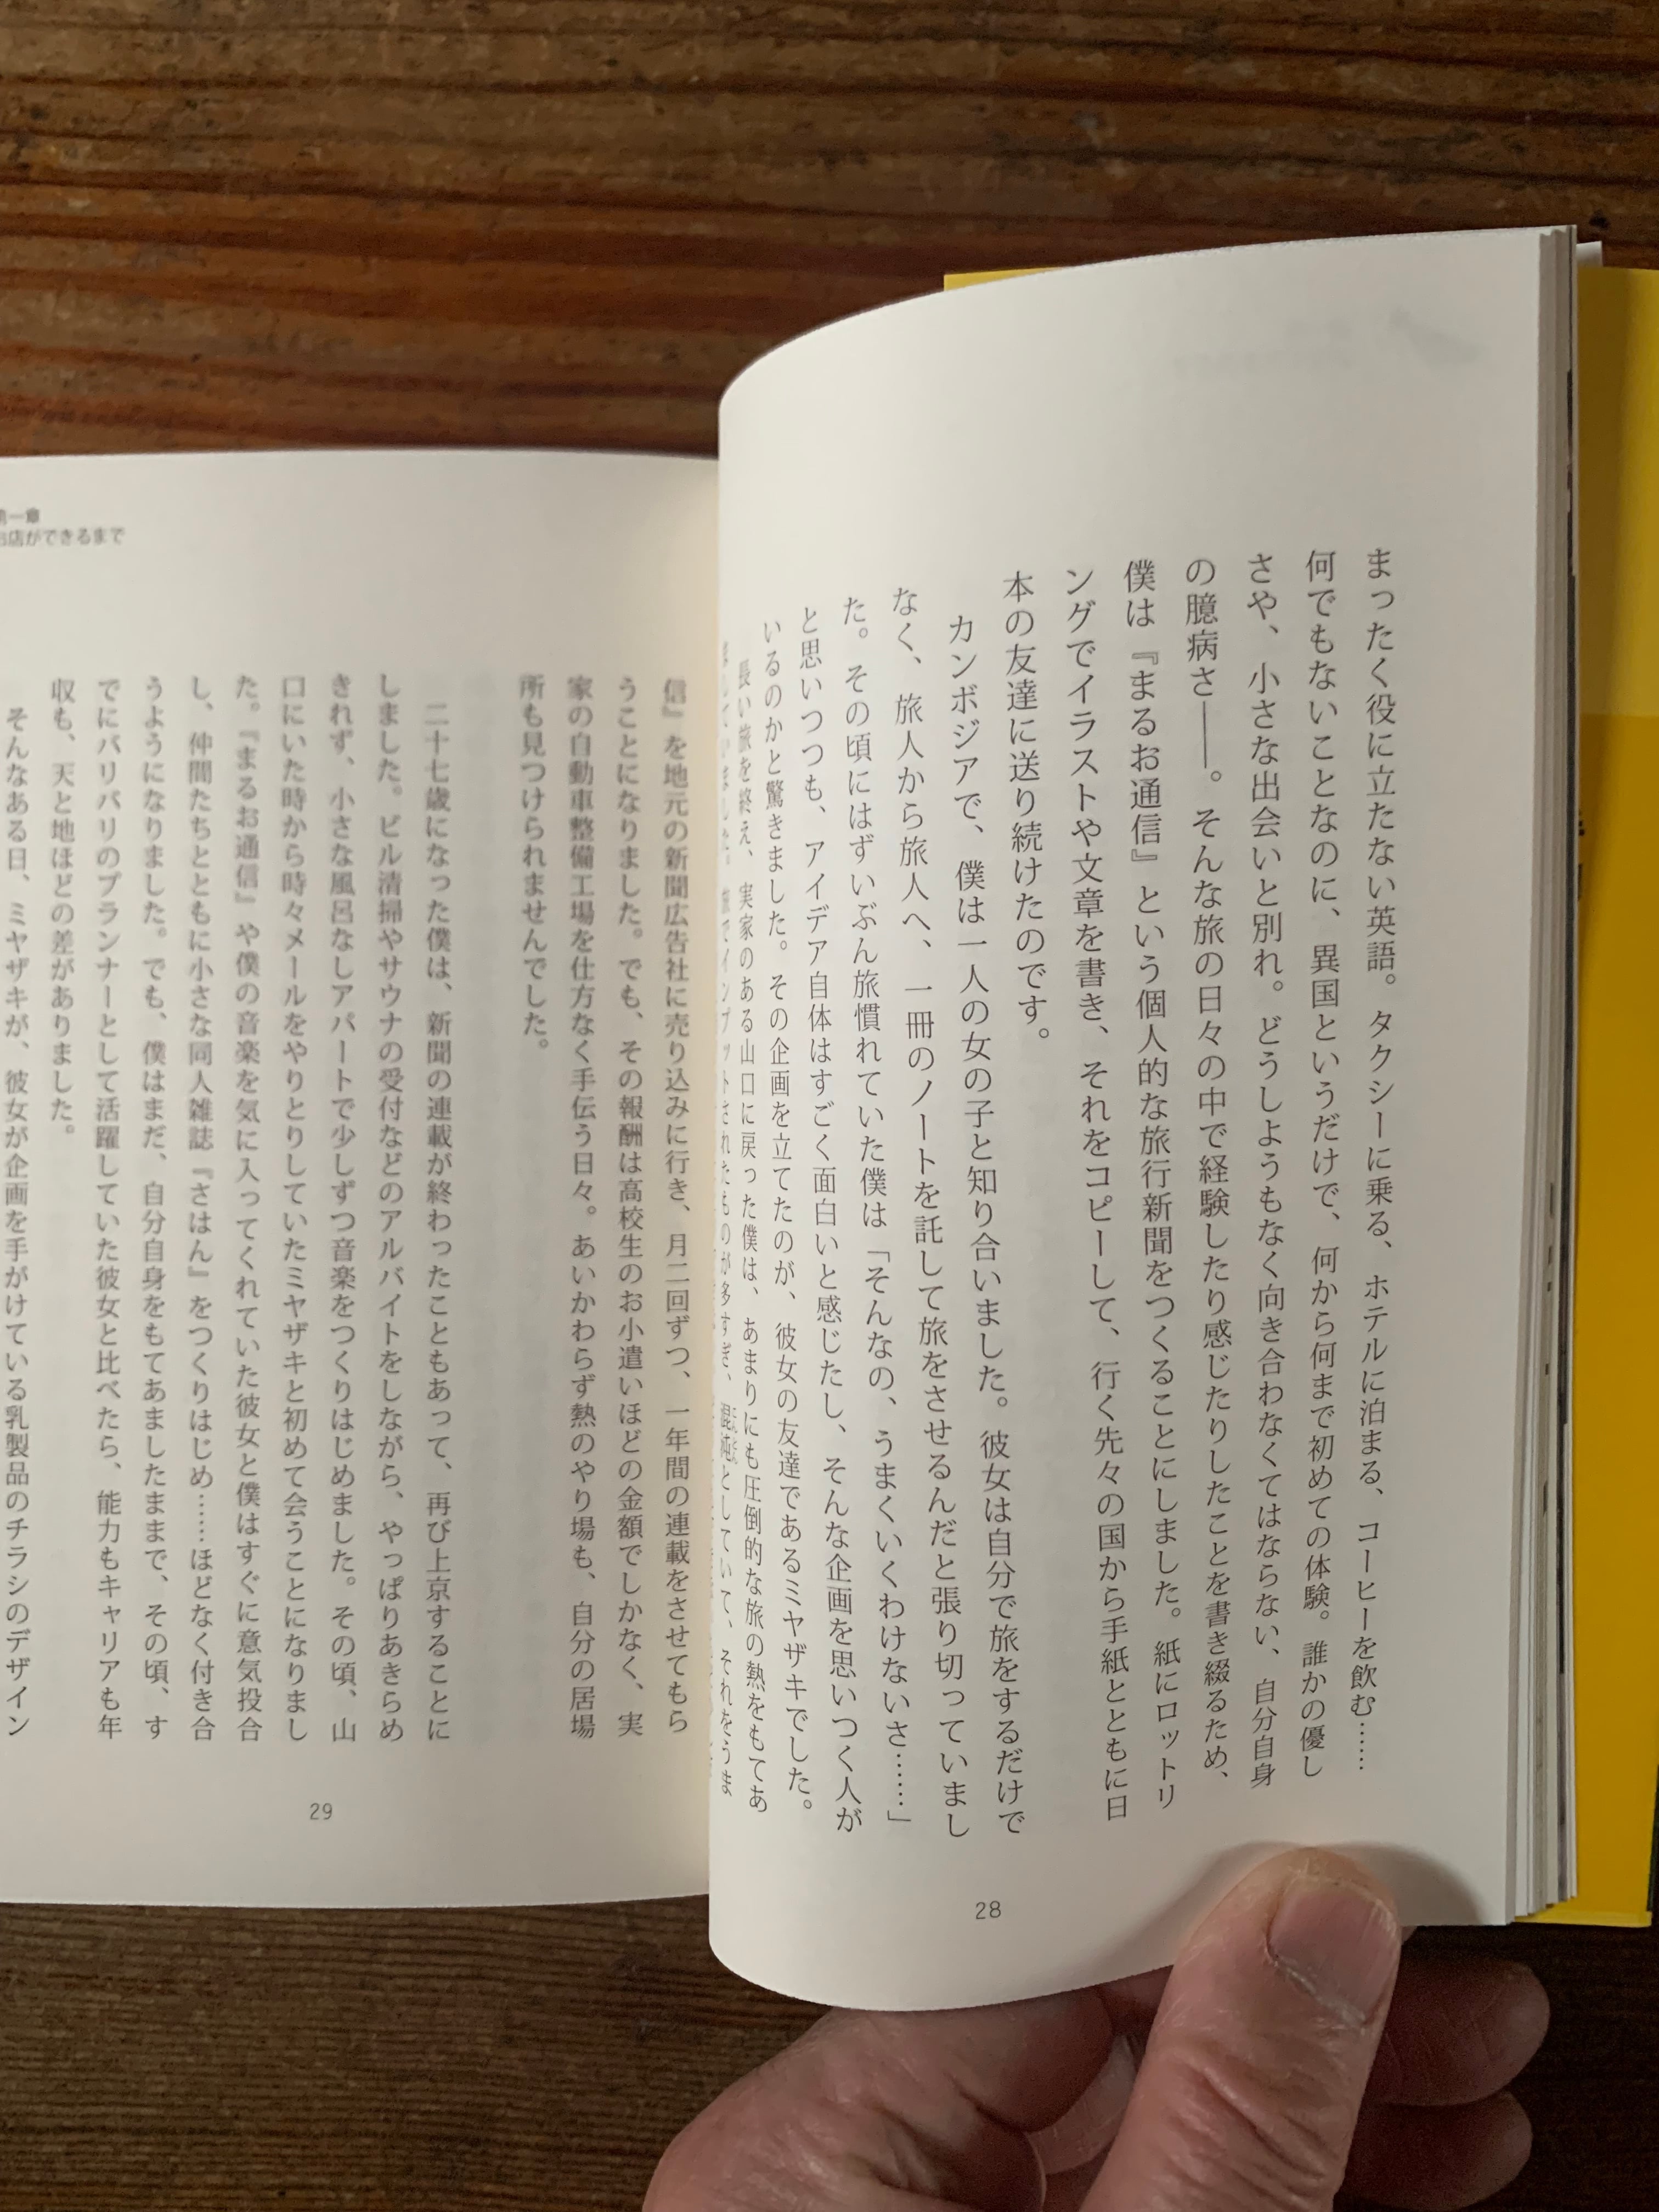 まったく役に立たない英語。タクシーに乗る、ホテルに泊まる、コーヒーを飲む……
何でもないことなのに、異国というだけで、何から何まで初めての体験。誰かの優し
さや、小さな出会いと別れ。どうしようもなく向き合わなくてはならない、自分自身
の臆病さ――。そんな旅の日々の中で経験したり感じたりしたことを書き綴るため、
僕は『まるお通信』という個人的な旅行新聞をつくることにしました。紙にロットリ
ングでイラストや文章を書き、それをコピーして、行く先々の国から手紙とともに日
本の友達に送り続けたのです。
カンボジアで、僕は一人の女の子と知り合いました。彼女は自分で旅をするだけで
なく、旅人から旅人へ、一冊のノートを託して旅をさせるんだと張り切っていまし
た。その頃にはずいぶん旅慣れていた僕は「そんなの、うまくいくわけないさ……」
と思いつつも、アイデア自体はすごく面白いと感じたし、そんな企画を思いつく人が
いるのかと驚きました。その企画を立てたのが、彼女の友達であるミヤザキでした。
長い旅を終え、実家のある山口に戻った僕は、あまりにも圧倒的な旅の熱をもてあ
ましていました。旅でインプットされたものが多すぎ、混沌としていて、それをうま
28
第一章
お店ができるまで
信』を地元の新聞広告社に売り込みに行き、月二回ずつ、一年間の連載をさせてもら
うことになりました。でも、その報酬は高校生のお小遣いほどの金額でしかなく、実
家の自動車整備工場を仕方なく手伝う日々。あいかわらず熱のやり場も、自分の居場
所も見つけられませんでした。
二十七歳になった僕は、新聞の連載が終わったこともあって、再び上京することに
しました。ビル清掃やサウナの受付などのアルバイトをしながら、やっぱりあきらめ
きれず、小さな風呂なしアパートで少しずつ音楽をつくりはじめました。その頃、山
口にいた時から時々メールをやりとりしていたミヤザキと初めて会うことになりまし
た。『まるお通信』や僕の音楽を気に入ってくれていた彼女と僕はすぐに意気投合
し、仲間たちとともに小さな同人雑誌『さはん』をつくりはじめ……ほどなく付き合
うようになりました。でも、僕はまだ、自分自身をもてあましたままで、その頃、す
でにバリバリのプランナーとして活躍していた彼女と比べたら、能力もキャリアも年
収も、天と地ほどの差がありました。
そんなある日、ミヤザキが、彼女が企画を手がけている乳製品のチラシのデザイン
29